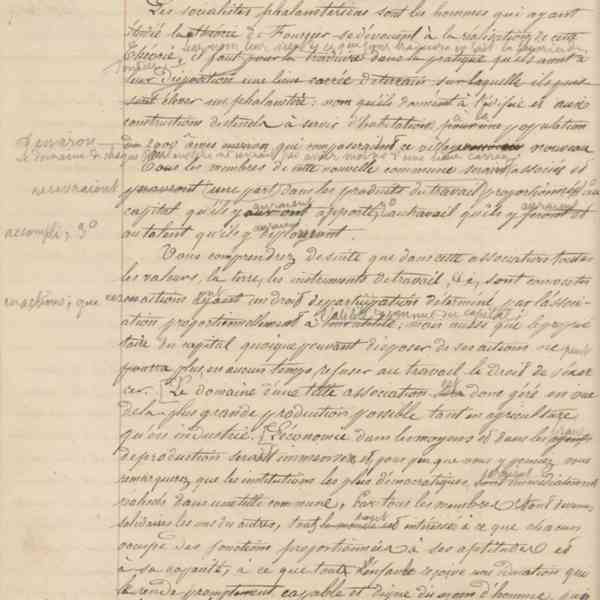 Les socialistes phalanstériens sont les hommes qui ayant
étudié la théorie de Fourier se dévouent à la réalisation de cette
théorie, il faut pour la traduire dans la pratique qu'ils aient à
leur disposition une lieue carrée de terrain sur laquelle ils puis
sent élever un phalanstère: nom qu'ils donnent à l'édifice et aux
constructions destinés à servir d'habitation à une population
d'environ
2000 âmes environ qui composeraient ce
le domaine de chaque phalanstère ne devrait pas avoir moins d'une lieue carrée
Tous les membres de cette nouvelle commune seraient associés et
recevraient
une part dans les produits du travail proportionnelle au
capital qu'ils y auraient apporté, 2° au travail qu'ils y auraient
accompli; 3°
au talent qu'ils y auraient
Vous comprendrez de suite que dans cette association toutes
les valeurs, la terre, les instruments de travail, &, sont converties
en actions; que ces
actions ayant un droit de participation déterminé par l'associ-
ation proportionnellement à mais aussi que le proprié
taire du capital quoique pouvant disposer de ses actions ne peut
pourra plus en aucun temps refuser au travail le droit de s'exer
cer. [Le domaine d'une telle association donc géré en vue
de la plus grande production possible tant en agriculture
qu'en industrie. [L'économie dans les moyens et dans les
de production serait immense, et pour peu que vous y pensiez vous
remarquerez que les institutions les plus démocratiques sont immédiatement
réalisées dans une telle commune, Car tous les membres étant devenus
solidaires les uns des autres, tout le monde est intéressé à ce que chacun
occupe des fonctions proportionnées à ses aptitudes et
à sa capacité, à ce que toute l'enfance reçoive une éducation qui
la rende promptement capable et digne du nom d'homme, que